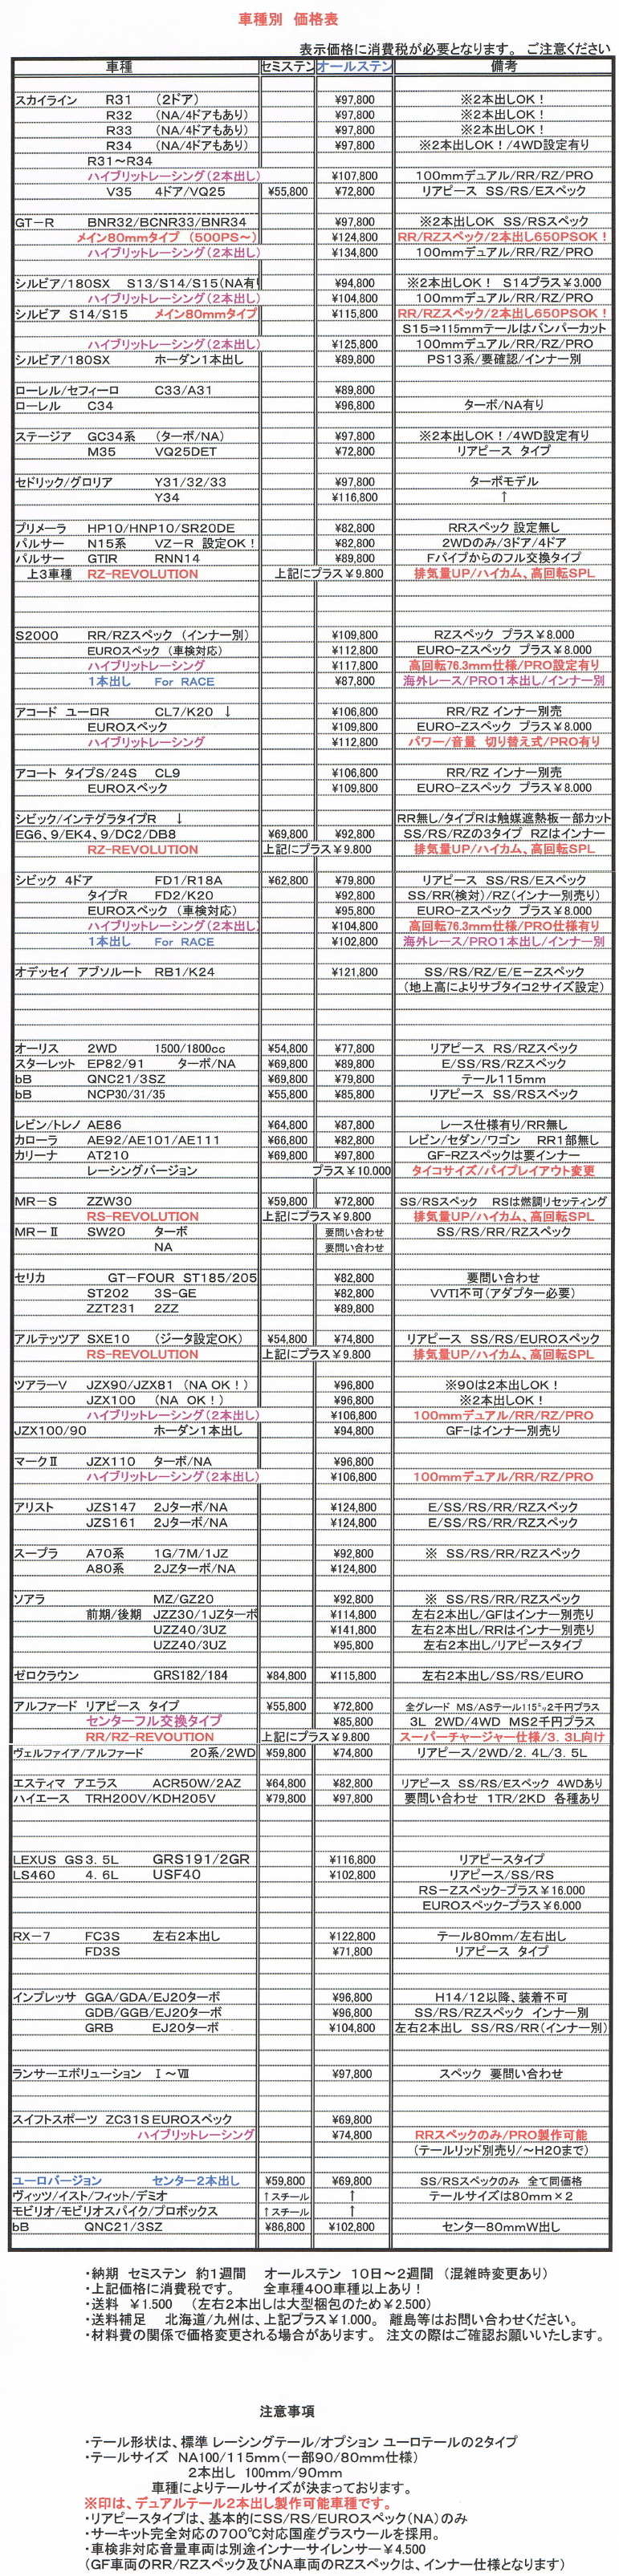 車種別 価格表
表示価格に消費税が必要となります。 ご注意ください
車種 セミステン オールステン 備考
スカイライン R31 (2ドア) ¥97,800 ※2本出しOK！
R32 (NA/4ドアもあり) ¥97,800 ※2本出しOK！
R33 (NA/4ドアもあり) ¥97,800 ※2本出しOK！
R34 (NA/4ドアもあり) ¥97,800 ※2本出しOK！/4WD設定有り
R31～R34
ハイブリットレーシング(2本出し) ¥107,800 100mmデュアル/RR/RZ/PRO
V35 4ドア/VQ25 ¥55,800 ¥72,800 リアピース SS/RS/Eスペック
GT－R BNR32/BCNR33/BNR34 ¥97,800 ※2本出しOK SS/RSスペック
メイン80mmタイプ (500PS～) ¥124,800 RR/RZスペック/2本出し650PSOK！
ハイブリットレーシング(2本出し) ¥134,800 100mmデュアル/RR/RZ/PRO
シルビア/180SX S13/S14/S15(NA有り ¥94,800 ※2本出しOK！ S14プラス¥3.000
ハイブリットレーシング(2本出し) ¥104,800 100mmデュアル/RR/RZ/PRO
シルビア S14/S15 メイン80mmタイプ ¥115,800 RR/RZスペック/2本出し650PSOK！
S15⇒115mmテールはバンパーカット
ハイブリットレーシング(2本出し) ¥125,800 100mmデュアル/RR/RZ/PRO
シルビア/180SX ホーダン1本出し ¥89,800 PS13系/要確認/インナー別
ローレル/セフィーロ C33/A31 ¥89,800
ローレル C34 ¥96,800 ターボ/NA有り
ステージア GC34系 (ターボ/NA) ¥97,800 ※2本出しOK！/4WD設定有り
M35 VQ25DET ¥72,800 リアピース タイプ
セドリック/グロリア Y31/32/33 ¥97,800 ターボモデル
Y34 ¥116,800 ↑
プリメーラ HP10/HNP10/SR20DE ¥82,800 RRスペック 設定無し
パルサー N15系 VZ－R 設定OK！ ¥82,800 2WDのみ/3ドア/4ドア
パルサー GTIR RNN14 ¥89,800 Fパイプからのフル交換タイプ
上3車種 RZ-REVOLUTION 上記にプラス¥9.800 排気量UP/ハイカム、高回転SPL
S2000 RR/RZスペック (インナー別) ¥109,800 RZスペック プラス¥8.000
EUROスペック (車検対応) ¥112,800 EURO-Zスペック プラス¥8.000
ハイブリットレーシング ¥117,800 高回転76.3mm仕様/PRO設定有り
1本出し For RACE ¥87,800 海外レース/PRO1本出し/インナー別
アコード ユーロR CL7/K20 ↓ ¥106,800 RR/RZ インナー別売
EUROスペック ¥109,800 EURO-Zスペック プラス¥8.000
ハイブリットレーシング ¥112,800 パワー/音量 切り替え式/PRO有り
アコート タイプS/24S CL9 ¥106,800 RR/RZ インナー別売
EUROスペック ¥109,800 EURO-Zスペック プラス¥8.000
シビック/インテグラタイプR ↓ RR無し/タイプRは触媒遮熱板一部カット
EG6、9/EK4、9/DC2/DB8 ¥69,800 ¥92,800 SS/RS/RZの3タイプ RZはインナー
RZ-REVOLUTION 上記にプラス¥9.800 排気量UP/ハイカム、高回転SPL
シビック 4ドア FD1/R18A ¥62,800 ¥79,800 リアピース SS/RS/Eスペック
タイプR FD2/K20 ¥92,800 SS/RR(検対)/RZ(インナー別売り)
EUROスペック (車検対応) ¥95,800 EURO-Zスペック プラス¥8.000
ハイブリットレーシング(2本出し) ¥104,800 高回転76.3mm仕様/PRO仕様有り
1本出し For RACE ¥102,800 海外レース/PRO1本出し/インナー別
オデッセイ アブソルート RB1/K24 ¥121,800 SS/RS/RZ/E/E－Zスペック
(地上高によりサブタイコ2サイズ設定)
オーリス 2WD 1500/1800cc ¥54,800 ¥77,800 リアピース RS/RZスペック
スターレット EP82/91 ターボ/NA ¥69,800 ¥89,800 E/SS/RS/RZスペック
bB QNC21/3SZ ¥69,800 ¥79,800 テール115mm
bB NCP30/31/35 ¥55,800 ¥85,800 リアピース SS/RSスペック
レビン/トレノ AE86 ¥64,800 ¥87,800 レース仕様有り/RR無し
カローラ AE92/AE101/AE111 ¥66,800 ¥82,800 レビン/セダン/ワゴン RR1部無し
カリーナ AT210 ¥69,800 ¥97,800 GF-RZスペックは要インナー
レーシングバージョン プラス¥10.000 タイコサイズ/パイプレイアウト変更
MR－S ZZW30 ¥59,800 ¥72,800 SS/RSスペック RSは燃調リセッティング
RS-REVOLUTION 上記にプラス¥9.800 排気量UP/ハイカム、高回転SPL
MR－Ⅱ SW20 ターボ 要問い合わせ SS/RS/RR/RZスペック
NA 要問い合わせ
セリカ GT－FOUR ST185/205 ¥82,800 要問い合わせ
ST202 3S-GE ¥82,800 VVTI不可(アダプター必要)
ZZT231 2ZZ ¥89,800
アルテッツア SXE10 (ジータ設定OK) ¥54,800 ¥74,800 リアピース SS/RS/EUROスペック
RS-REVOLUTION 上記にプラス¥9.800 排気量UP/ハイカム、高回転SPL
ツアラーV JZX90/JZX81 (NA OK！) ¥96,800 ※90は2本出しOK！
JZX100 (NA OK！) ¥96,800 ※2本出しOK！
ハイブリットレーシング(2本出し) ¥106,800 100mmデュアル/RR/RZ/PRO
JZX100/90 ホーダン1本出し ¥94,800 GF-はインナー別売り
マークⅡ JZX110 ターボ/NA ¥96,800
ハイブリットレーシング(2本出し) ¥106,800 100mmデュアル/RR/RZ/PRO
アリスト JZS147 2Jターボ/NA ¥124,800 E/SS/RS/RR/RZスペック
JZS161 2Jターボ/NA ¥124,800 E/SS/RS/RR/RZスペック
スープラ A70系 1G/7M/1JZ ¥92,800 ※ SS/RS/RR/RZスペック
A80系 2JZターボ/NA ¥124,800
ソアラ MZ/GZ20 ¥92,800 ※ SS/RS/RR/RZスペック
前期/後期 JZZ30/1JZターボ ¥114,800 左右2本出し/GFはインナー別売り
UZZ40/3UZ ¥141,800 左右2本出し/RRはインナー別売り
UZZ40/3UZ ¥95,800 左右2本出し/リアピースタイプ
ゼロクラウン GRS182/184 ¥84,800 ¥115,800 左右2本出し/SS/RS/EURO
アルファード リアピース タイプ ¥55,800 ¥72,800 全グレード MS/ASテール115㍉ッ2千円プラス
センターフル交換タイプ ¥85,800 3L 2WD/4WD MS2千円プラス
RR/RZ-REVOUTION 上記にプラス¥9.800 スーパーチャージャー仕様/3.3L向け
ヴェルファイア/アルファード 20系/2WD ¥59,800 ¥74,800 リアピース/2WD/2.4L/3.5L
エスティマ アエラス ACR50W/2AZ ¥64,800 ¥82,800 リアピース SS/RS/Eスペック 4WDあり
ハイエース TRH200V/KDH205V ¥79,800 ¥97,800 要問い合わせ 1TR/2KD 各種あり
LEXUS GS3.5L GRS191/2GR ¥116,800 リアピースタイプ
LS460 4.6L USF40 ¥102,800 リアピース/SS/RS
RS－Zスペック-プラス¥16.000
EUROスペック-プラス¥6.000
RX－7 FC3S 左右2本出し ¥122,800 テール80mm/左右出し
FD3S ¥71,800 リアピース タイプ
インプレッサ GGA/GDA/EJ20ターボ ¥96,800 H14/12以降、装着不可
GDB/GGB/EJ20ターボ ¥96,800 SS/RS/RZスペック インナー別
GRB EJ20ターボ ¥104,800 左右2本出し SS/RS/RR(インナー別)
ランサーエボリューション Ⅰ～Ⅶ ¥97,800 スペック 要問い合わせ
スイフトスポーツ ZC31S EUROスペック ¥69,800
ハイブリットレーシング ¥74,800 RRスペックのみ/PRO製作可能
(テールリッド別売り/～H20まで)
ユーロバージョン センター2本出し ¥59,800 ¥69,800 SS/RSスペックのみ 全て同価格
ヴィッツ/イスト/フィット/デミオ ↑スチール ↑ テールサイズは80mm×2
モビリオ/モビリオスパイク/プロボックス ↑スチール ↑
bB QNC21/3SZ ¥86,800 ¥102,800 センター80mmW出し
・納期 セミステン 約1週間 オールステン 10日～2週間 (混雑時変更あり)
・上記価格に消費税です。 全車種400車種以上あり！
・送料 ¥1.500 (左右2本出しは大型梱包のため¥2.500)
・送料補足 北海道/九州は、上記プラス¥1.000。 離島等はお問い合わせください。
・材料費の関係で価格変更される場合があります。 注文の際はご確認お願いいたします。
注意事項
・テール形状は、標準 レーシングテール/オプション ユーロテールの2タイプ
・テールサイズ NA100/115mm(一部90/80mm仕様)
2本出し 100mm/90mm
車種によりテールサイズが決まっております。
※印は、デュアルテール2本出し製作可能車種です。
・リアピースタイプは、基本的にSS/RS/EUROスペック(NA)のみ
・サーキット完全対応の700℃対応国産グラスウールを採用。
・車検非対応音量車両は別途インナーサイレンサー¥4.500
(GF車両のRR/RZスペック及びNA車両のRZスペックは、インナー仕様となります)